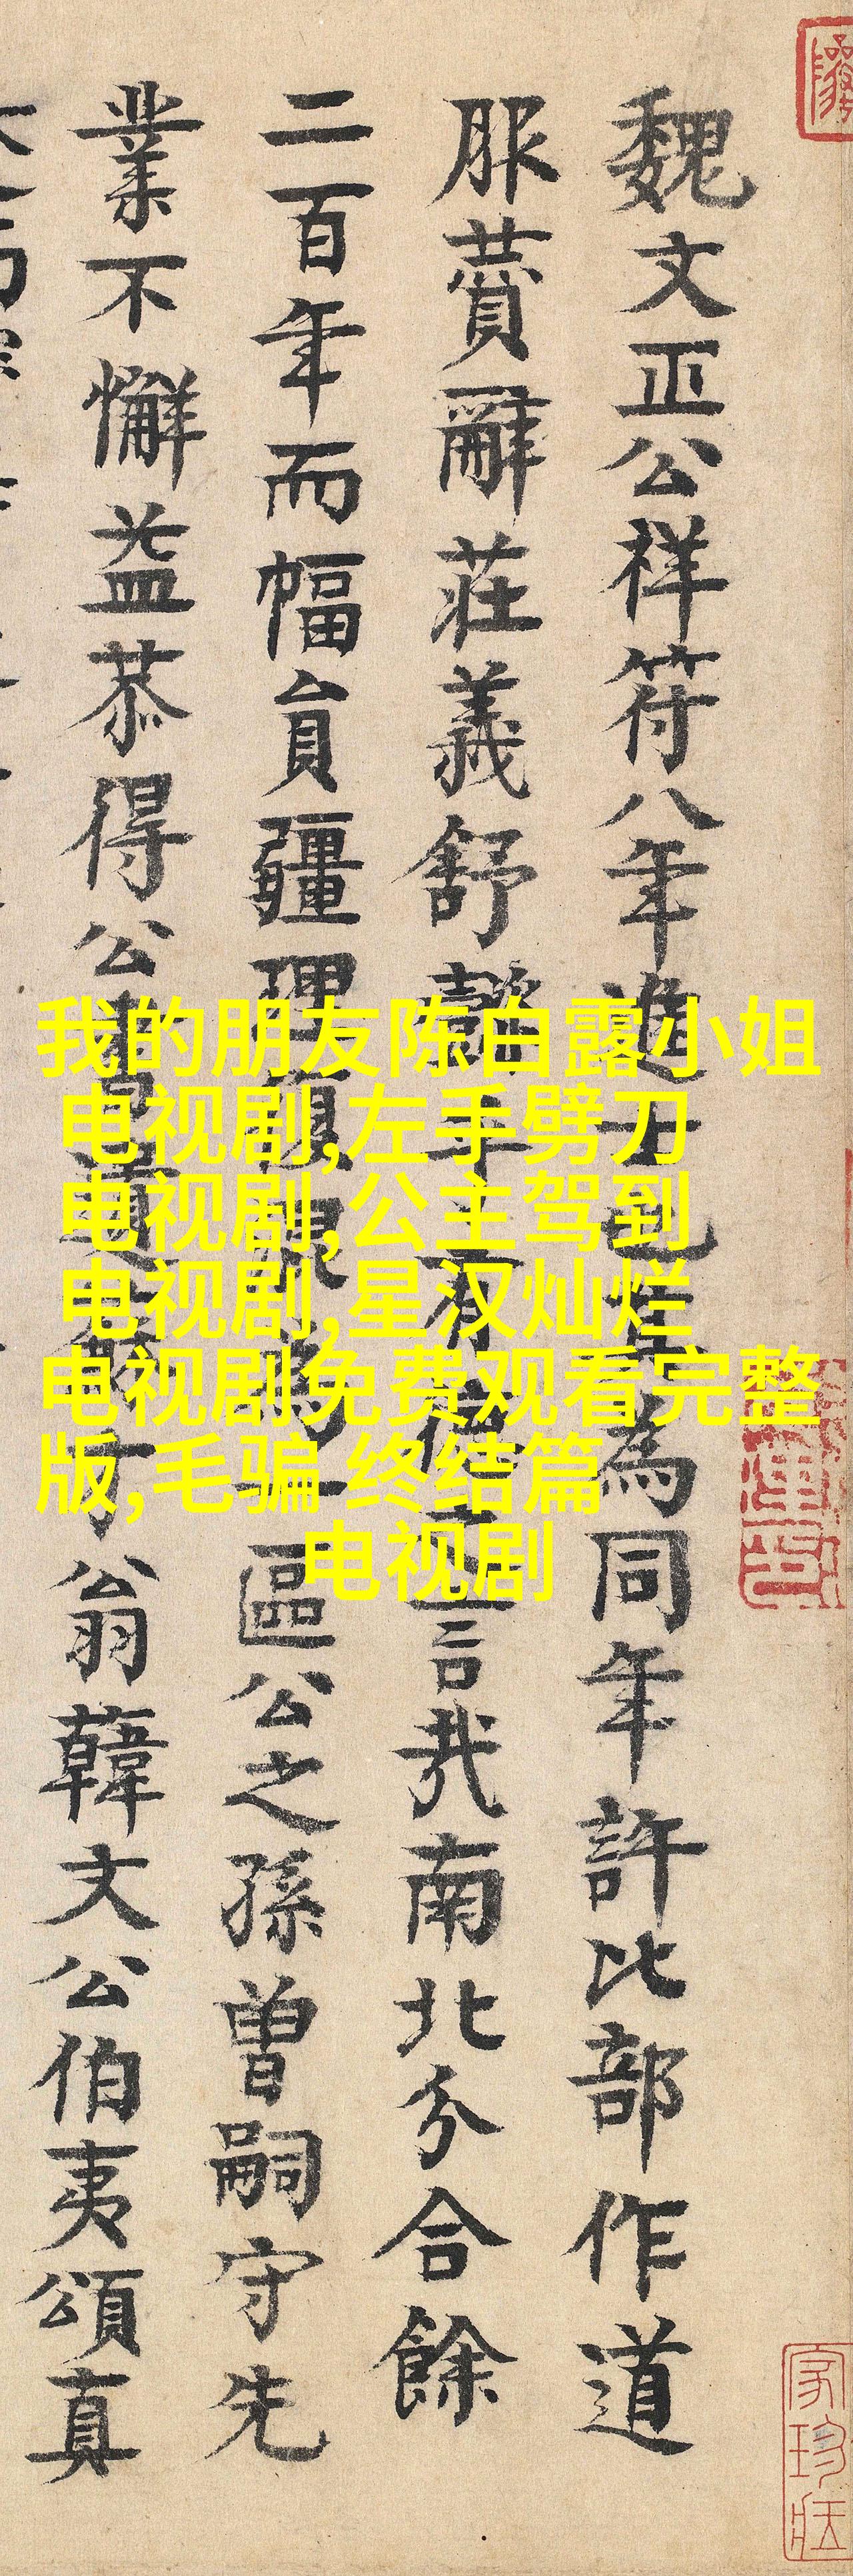 魏文正公祥符八年進士也為同年許比部作道
服贊辭莊義舒懿乎有德之言哉南北分合餘
二百年而幅員疆理復混為一區公之孫曾嗣守先
業不懈益恭得公書翁韓文公伯夷頌真
我的朋友陈白露小姐
电视剧,左手劈刀
电视剧,公主驾到
电视剧,星汉灿烂
电视剧免费观看完整
版,毛骗 终结篇
电视剧